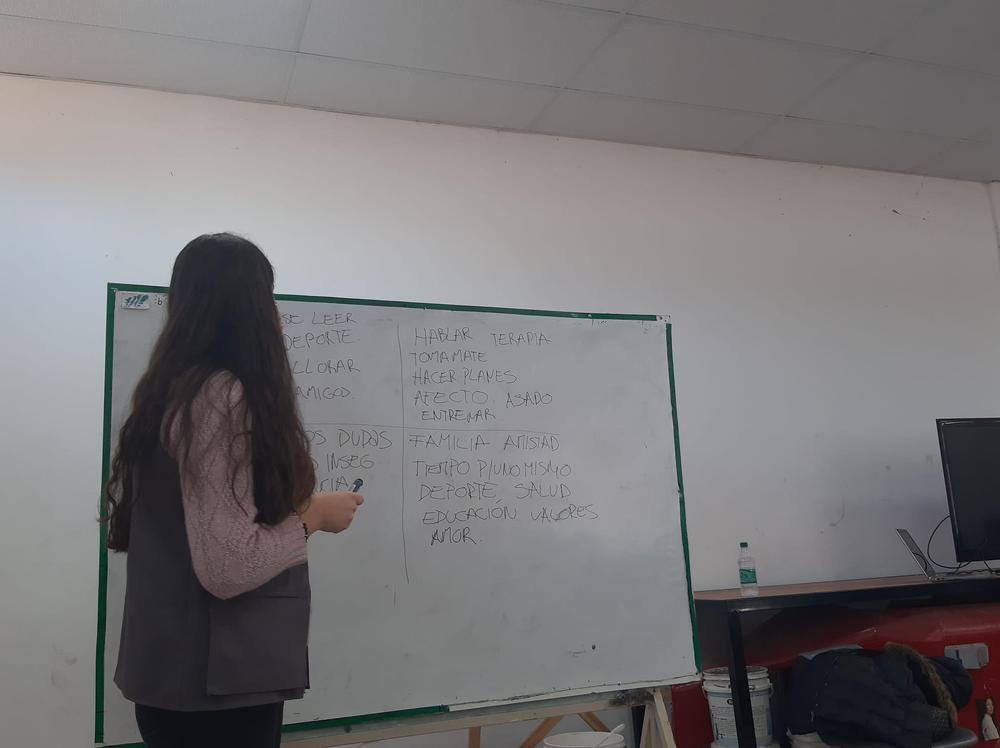 SE LEER
DEPORTE.
LLORAR
AMIGOS.
HABLAR TERAPIA
TOMAMATE
HACER PLANES
AFECTO. ASADO
ENTRENAR
OS DUDAS
INSEG
CIA
FAMILIA AMISTAD
TIEMPO P/UNO MISMO
DEPORTE, SALUD
EDUCACIÓN VALORES
AMOR.